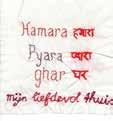 Hamara हमारा
Pyara प्यारा
ghar घर
mijn liefdevol thuis